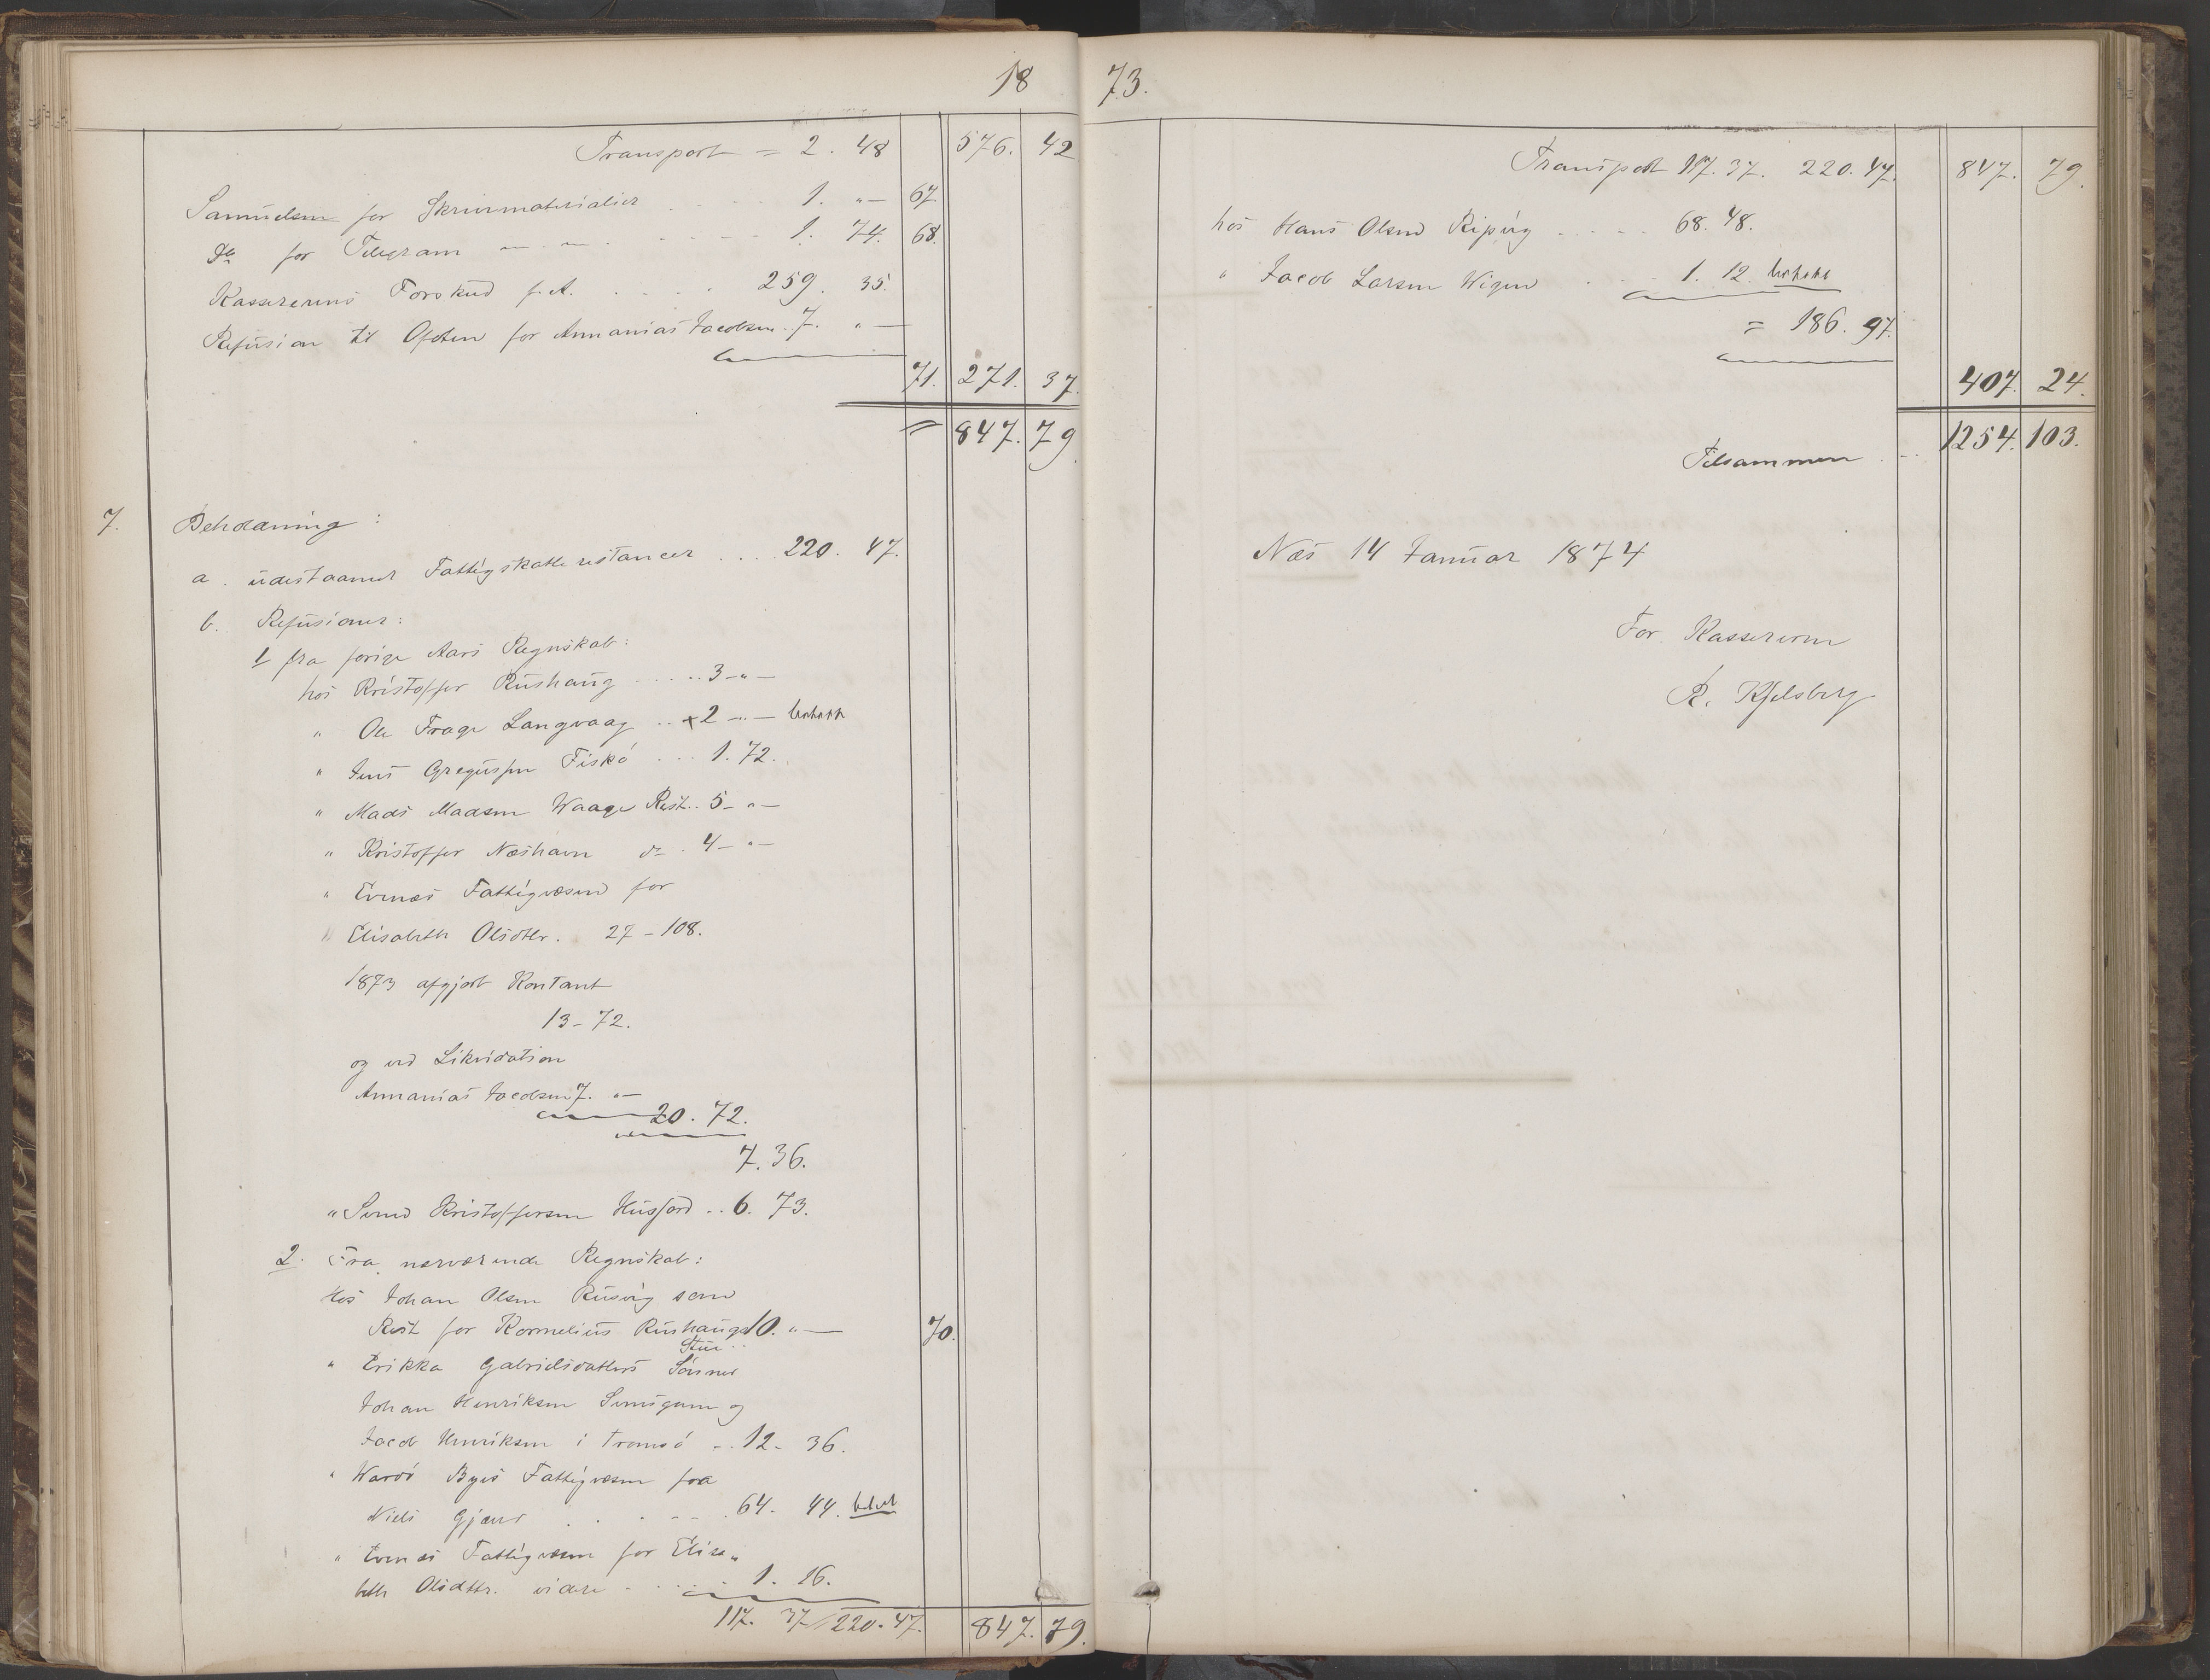 18
Transport = 2. 48 576. 42
Samuelsen for Skrivmaterialier 1. „— 67.
do for Telegram 1. 74. 68.
Kassererens Forskud f. A. 259. 35.
Refusion til Ofoten for Annanias Jacobsen 7. „—
71. 271. 37.
= 847. 79.
7. Beholdning:
a. udestaaende Fattigskatterestancer .... 220. 47.
b. Refusioner:
1 fra forige Aars Regnskab:
hos Kristoffer Rushaug ..... 3 „—
„ Ole Trage Langvaag .. x2 „—
„ Jens Gregussen Fiskö ... 1. 72.
„ Mads Madsen Waage Rest. 5 „—
„ Kristoffer Næshavn do. 4 „—
„ Evenæs Fattigvæsend for
Elisabeth Olsdtr. 27 – 108.
1873 afgjort Kontant
13 – 72.
og ved Likvidation
Annanias Jacobsen 7. „—
20. 72.
7. 36.
„ Svend Kristoffersen Husfjord .. 6. 73.
2. Fra nærværende Regnskab:
Hos Johan Olsen Rusvig som
Rest for Kornelius Rushaugs 10. „— 70.
Stue ..
„ Erikka Gabrielsdatters Sönner
Johan Henriksen og
Jacob Henriksen i Tromsö .. 12. 36.
„ Wardö Byes Fattigvæsen for
Niels Gjæver .... 64. 44.
„ Evenæs Fattigvæsen for Elisa„
beth Olsdttr. videre ..... 1. 16.
117. 37 / 220. 47. 847. 79.
73.
Transport 117. 37. 220. 47. 847. 79.
hos Hans Olsen Ripvig ..... 68. 48.
„ Jacob Larsen Wigen ... 1. 12.
= 186. 97.
407. 24.
Tilsammen ... 1254. 103.
Næs 14 Januar 1874
For Kassereren
R. Kjelsberg